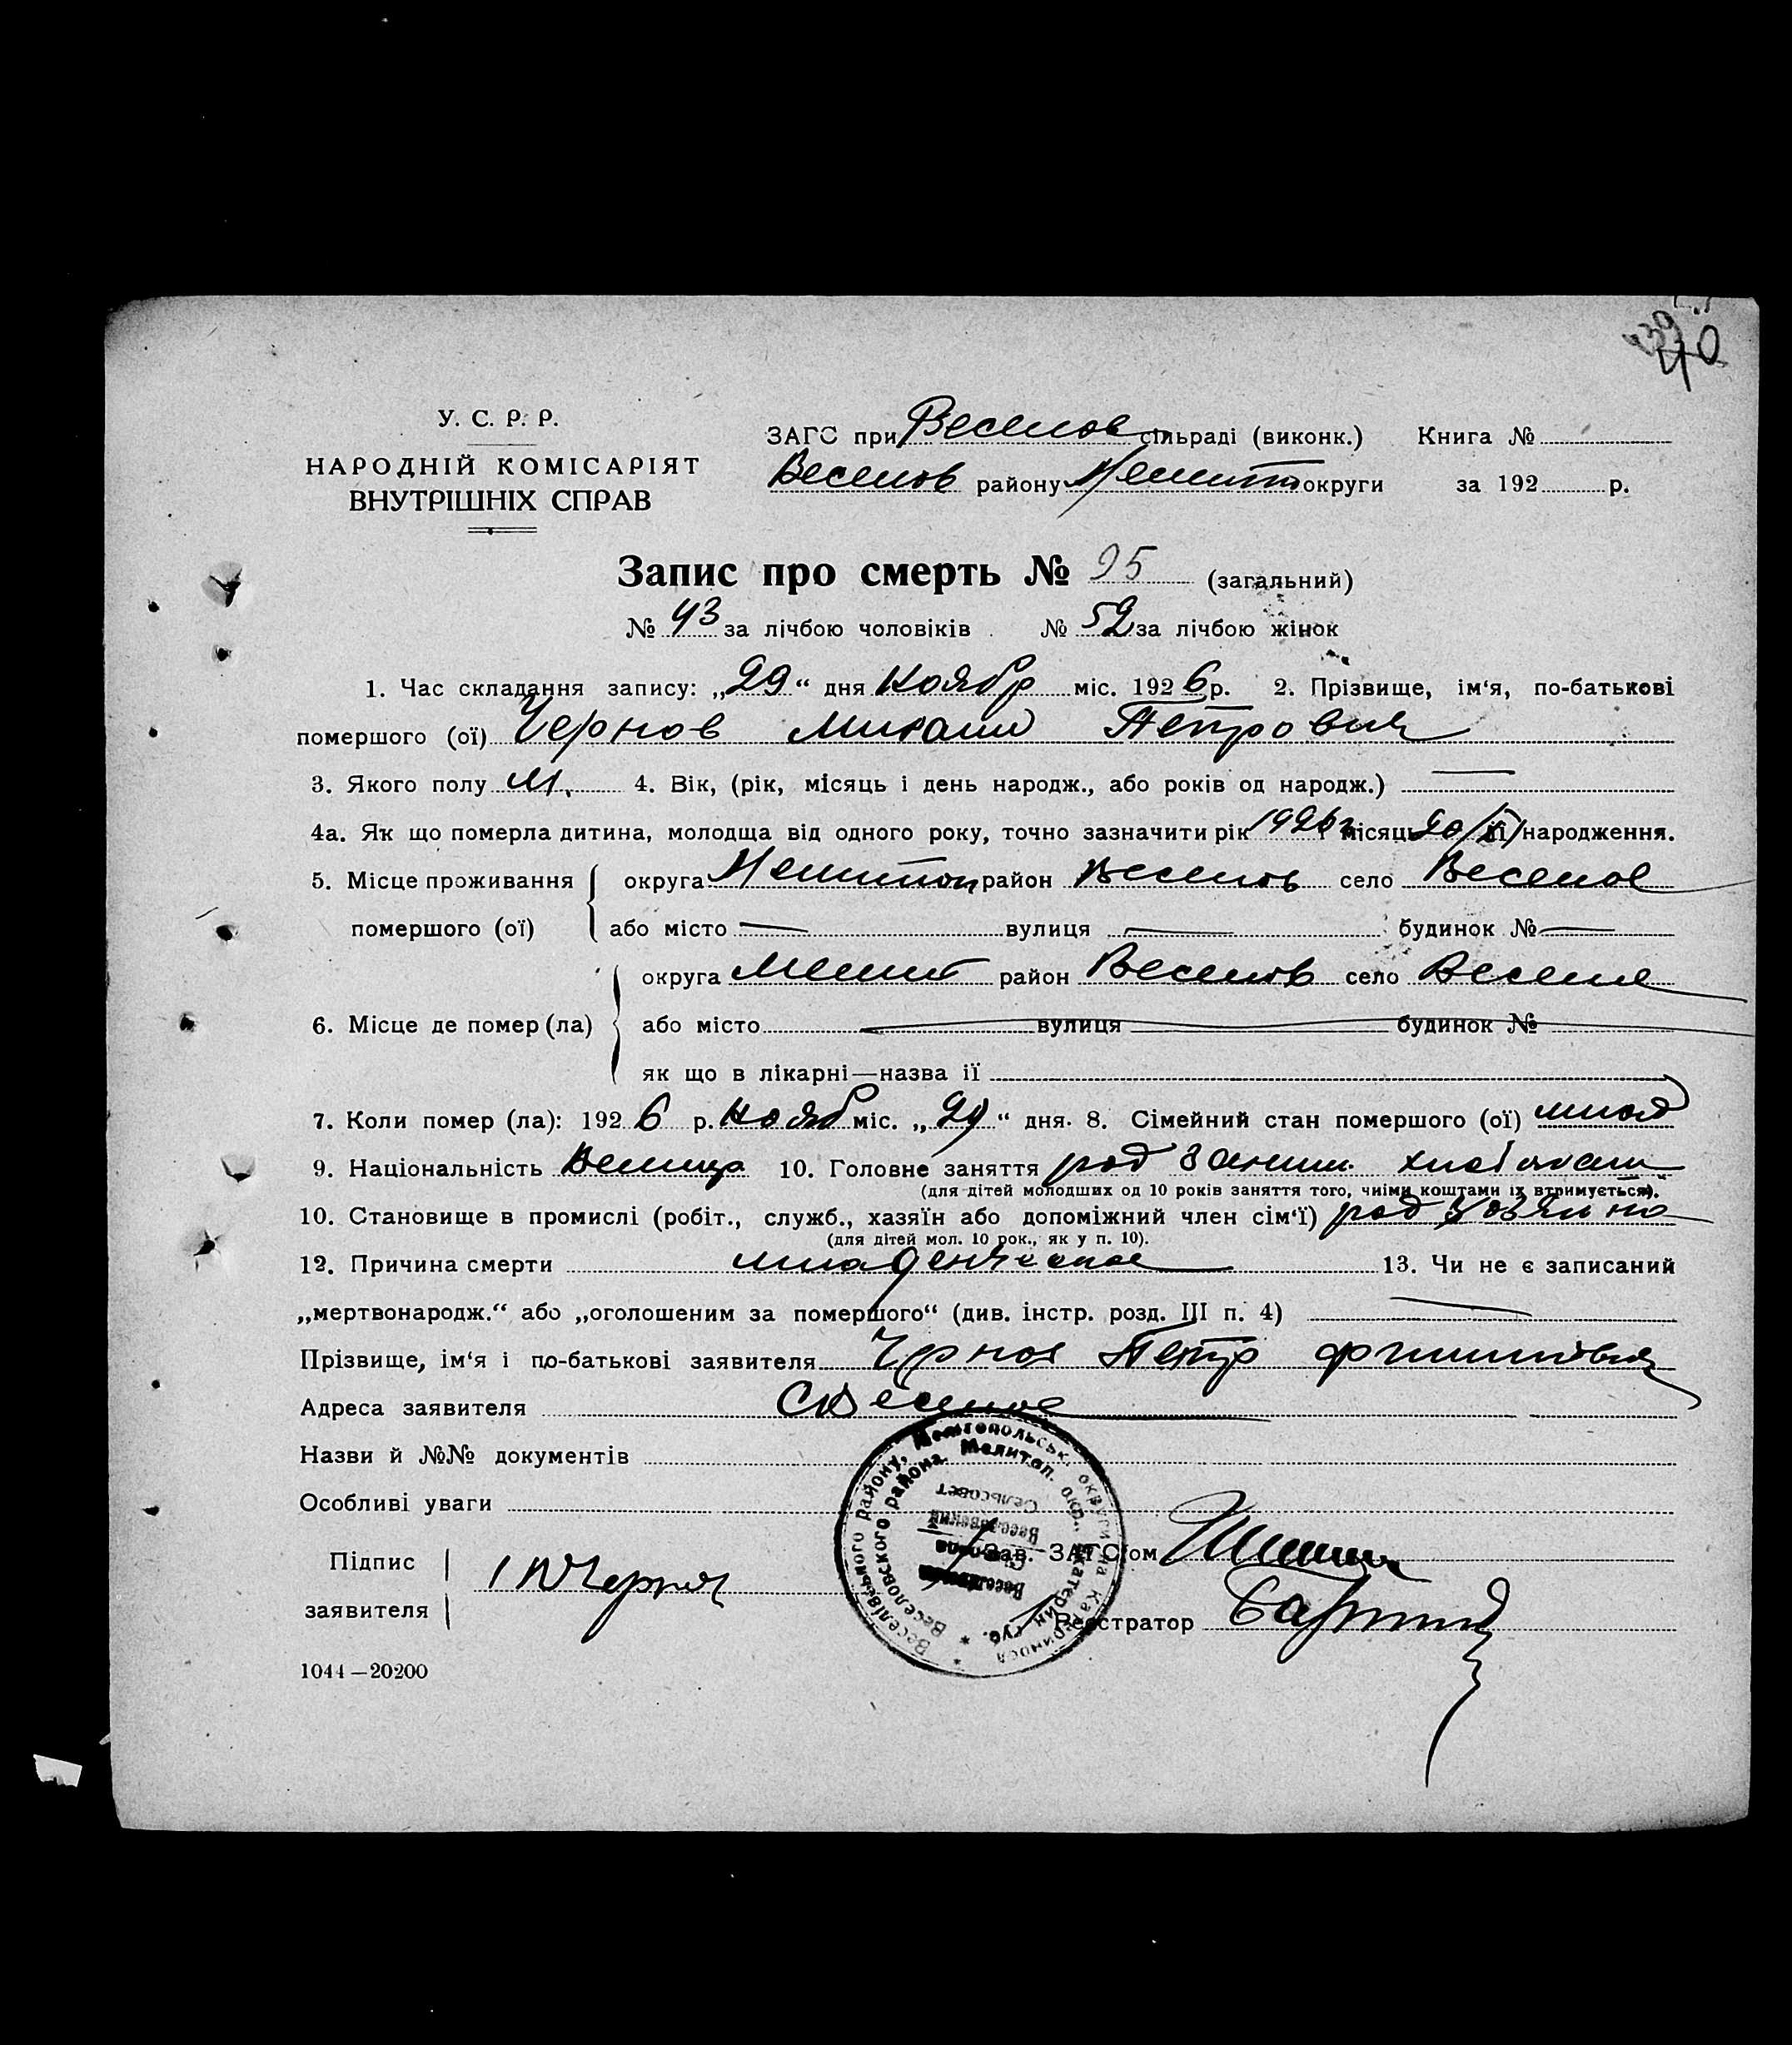 40
У. С. Р. Р.
НАРОДНІЙ КОМІСАРІЯТ
ВНУТРІШНІХ СПРАВ
ЗАГС при Веселов сільраді (виконк.) Книга №
Веселов району Мелитоп округи за 192 р.
Запис про смерть № 95 (загальний)
№ 43 за лічбою чоловіків № 52 за лічбою жінок
1. Час складання запису: „29“ дня Ноябр міс. 1926 р. 2. Прізвище, ім‘я, по-батькові
помершого (ої) Чернов Михаил Петрович
3. Якого полу М. 4. Вік, (рік, місяць і день народж., або років од народж.) —
4а. Як що померла дитина, молодща від одного року, точно зазначити рік 1926 г місяць 20/XI народження.
5. Місце проживання округа Мелитоп район Веселов село Веселое
помершого (ої) або місто — вулиця — будинок № —
округа Мелит район Веселов село Веселое
6. Місце де помер (ла) або місто вулиця будинок №
як що в лікарні—назва її
7. Коли помер (ла): 1926 р. Нояб міс. „29“ дня. 8. Сімейний стан помершого (ої) млад
9. Національність 10. Головне заняття род заним. хлебопаш
(для дітей молодших од 10 років заняття того, чиїми коштами їх втримується).
10. Становище в промислі (робіт., служб., хазяїн або допоміжний член сім‘ї) род хозяино
(для дітей мол. 10 рок., як у п. 10).
12. Причина смерти младенческое 13. Чи не є записаний
„мертвонародж.“ або „оголошеним за помершого“ (див. інстр. розд. III п. 4) —
Прізвище, ім‘я і по-батькові заявителя Чернов Петр Филиппович
Адреса заявителя С Веселое
Назви й №№ документів
Особливі уваги
Підпис
заявителя П Чернов
Зав. ЗАГС‘ом
Реєстратор
Веселівського району, Мелітопольськ. округи на Катеринос
Веселовского района, Мелитоп. окр., Екатерин. губ.
Веселовский
Сельсовет
1044—20200